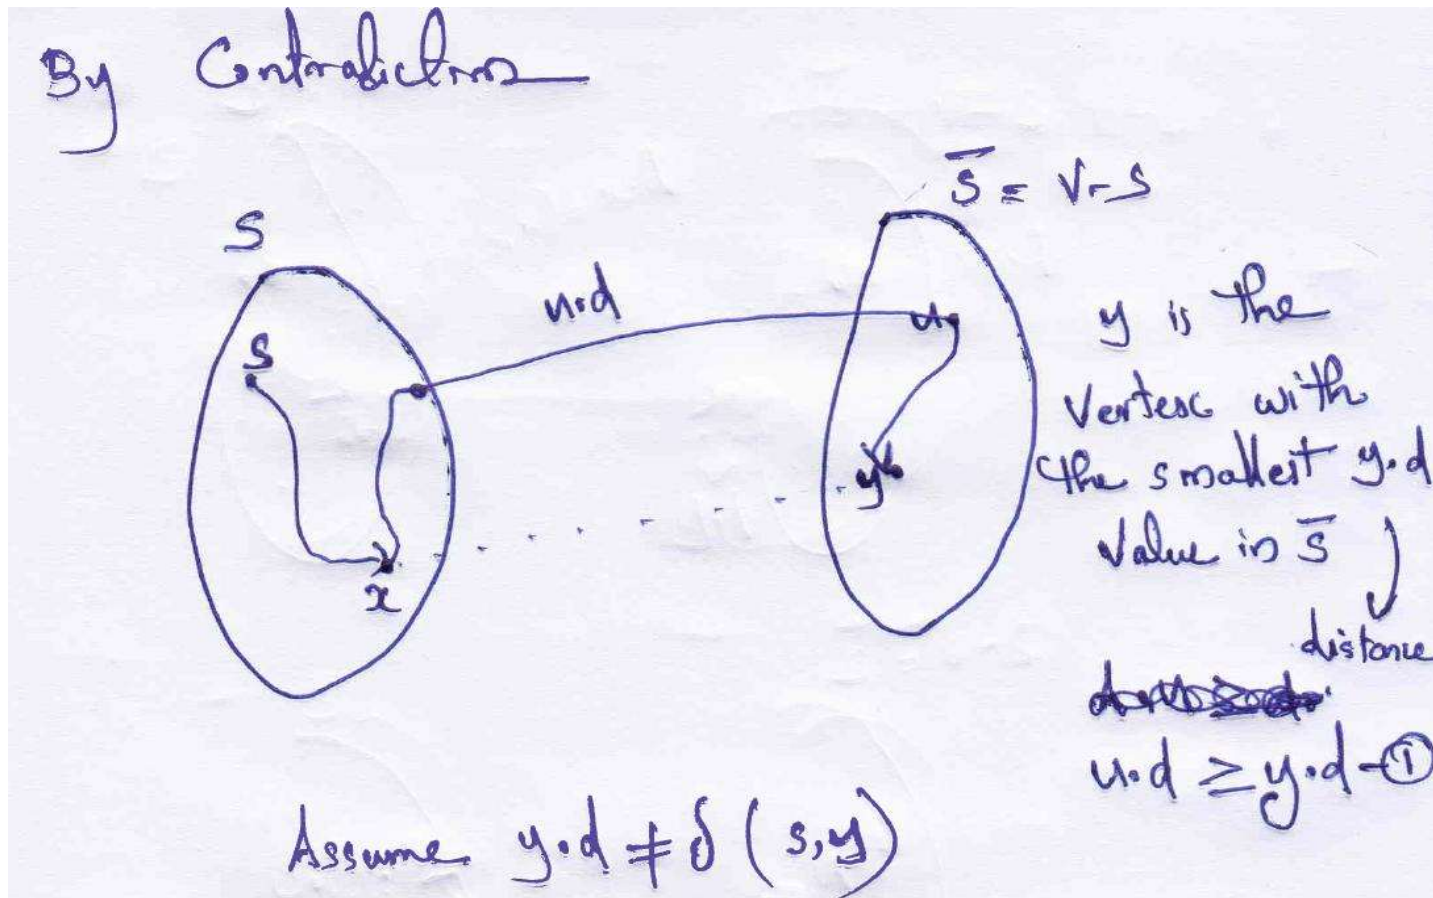 By Contradiction
S̄ = V-S
S
u.d
s
u
y
x
y is the
vertex with
the smallest y.d
value in S̄
distance
u.d ≥ y.d -①
Assume y.d ≠ δ (s,y)